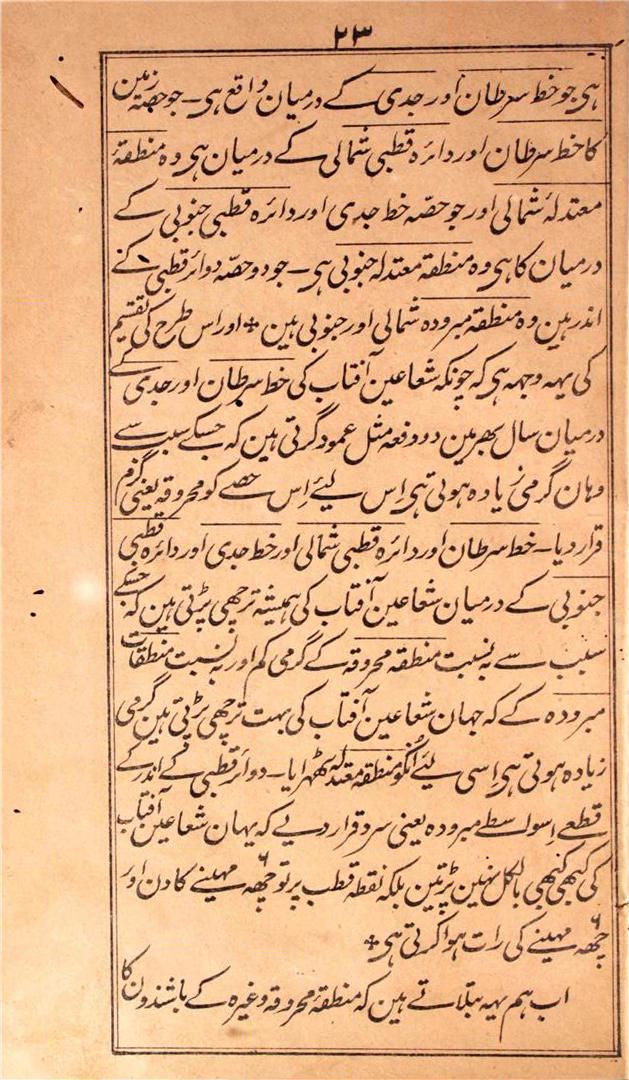 ۲۳
ہی جو خط سرطان اور جدی کے درمیان واقع ہی ۔ جو حصہ زمین
کا خط سرطان اور دائرہ قطبی شمالی کے درمیان ہی وہ منطقۂ
معتدلۂ شمالی اور جو حصّہ خط جدی اور دائرہ قطبی جنوبی کے
درمیان کا ہی وہ منطقہ معتدلہ جنوبی ہی ۔ جو دو حصّہ دوائر قطبی کے
اندر ہین وہ منطقہ مبرودہ شمالی اور جنوبی ہین + اور اس طرح کی تقسیم
کی یہہ وجہہ ہی کہ چونکہ شعاعین آفتاب کی خط سرطان اور جدی کے
درمیان سال بھر مین دو دفعہ مثل عمود گرتی ہین کہ جسکے سبب سے
وہان گرمی زیادہ ہوتی ہی اِس لیئے اِس حصے کو محروقہ یعنی گرم
قرار دیا ۔ خط سرطان اور دائرہ قطبی شمالی اور خط جدی اور دائرہ قطبی
جنوبی کے درمیان شعاعین آفتاب کی ہمیشہ ترچھی پڑتی ہین کہ جسکے
سبب سے بہ نسبت منطقہ محروقہ کے گرمی کم اور بہ نسبت منطقات
مبرودہ کے کہ جہان شعاعین آفتاب کی بہت ترچھی پڑتی ہین گرمی
زیادہ ہوتی ہی اِسی لیئے اُنکو منطقہ معتدلہ ٹھہرایا ۔ دوائر قطبی کے اندر کے
قطعے اِسواسطے مبرودہ یعنی سرد قرار دیے کہ یہان شعاعین آفتاب
کی کبھی کبھی بالکل نہین پڑتین بلکہ نقطہ قطب پر تو چھہ مہینے کا دن اور
چھہ مہینے کی رات ہوا کرتی ہی +
اب ہم یہہ بتلاتے ہین کہ منطقۂ محروقہ وغیرہ کے باشندون کا